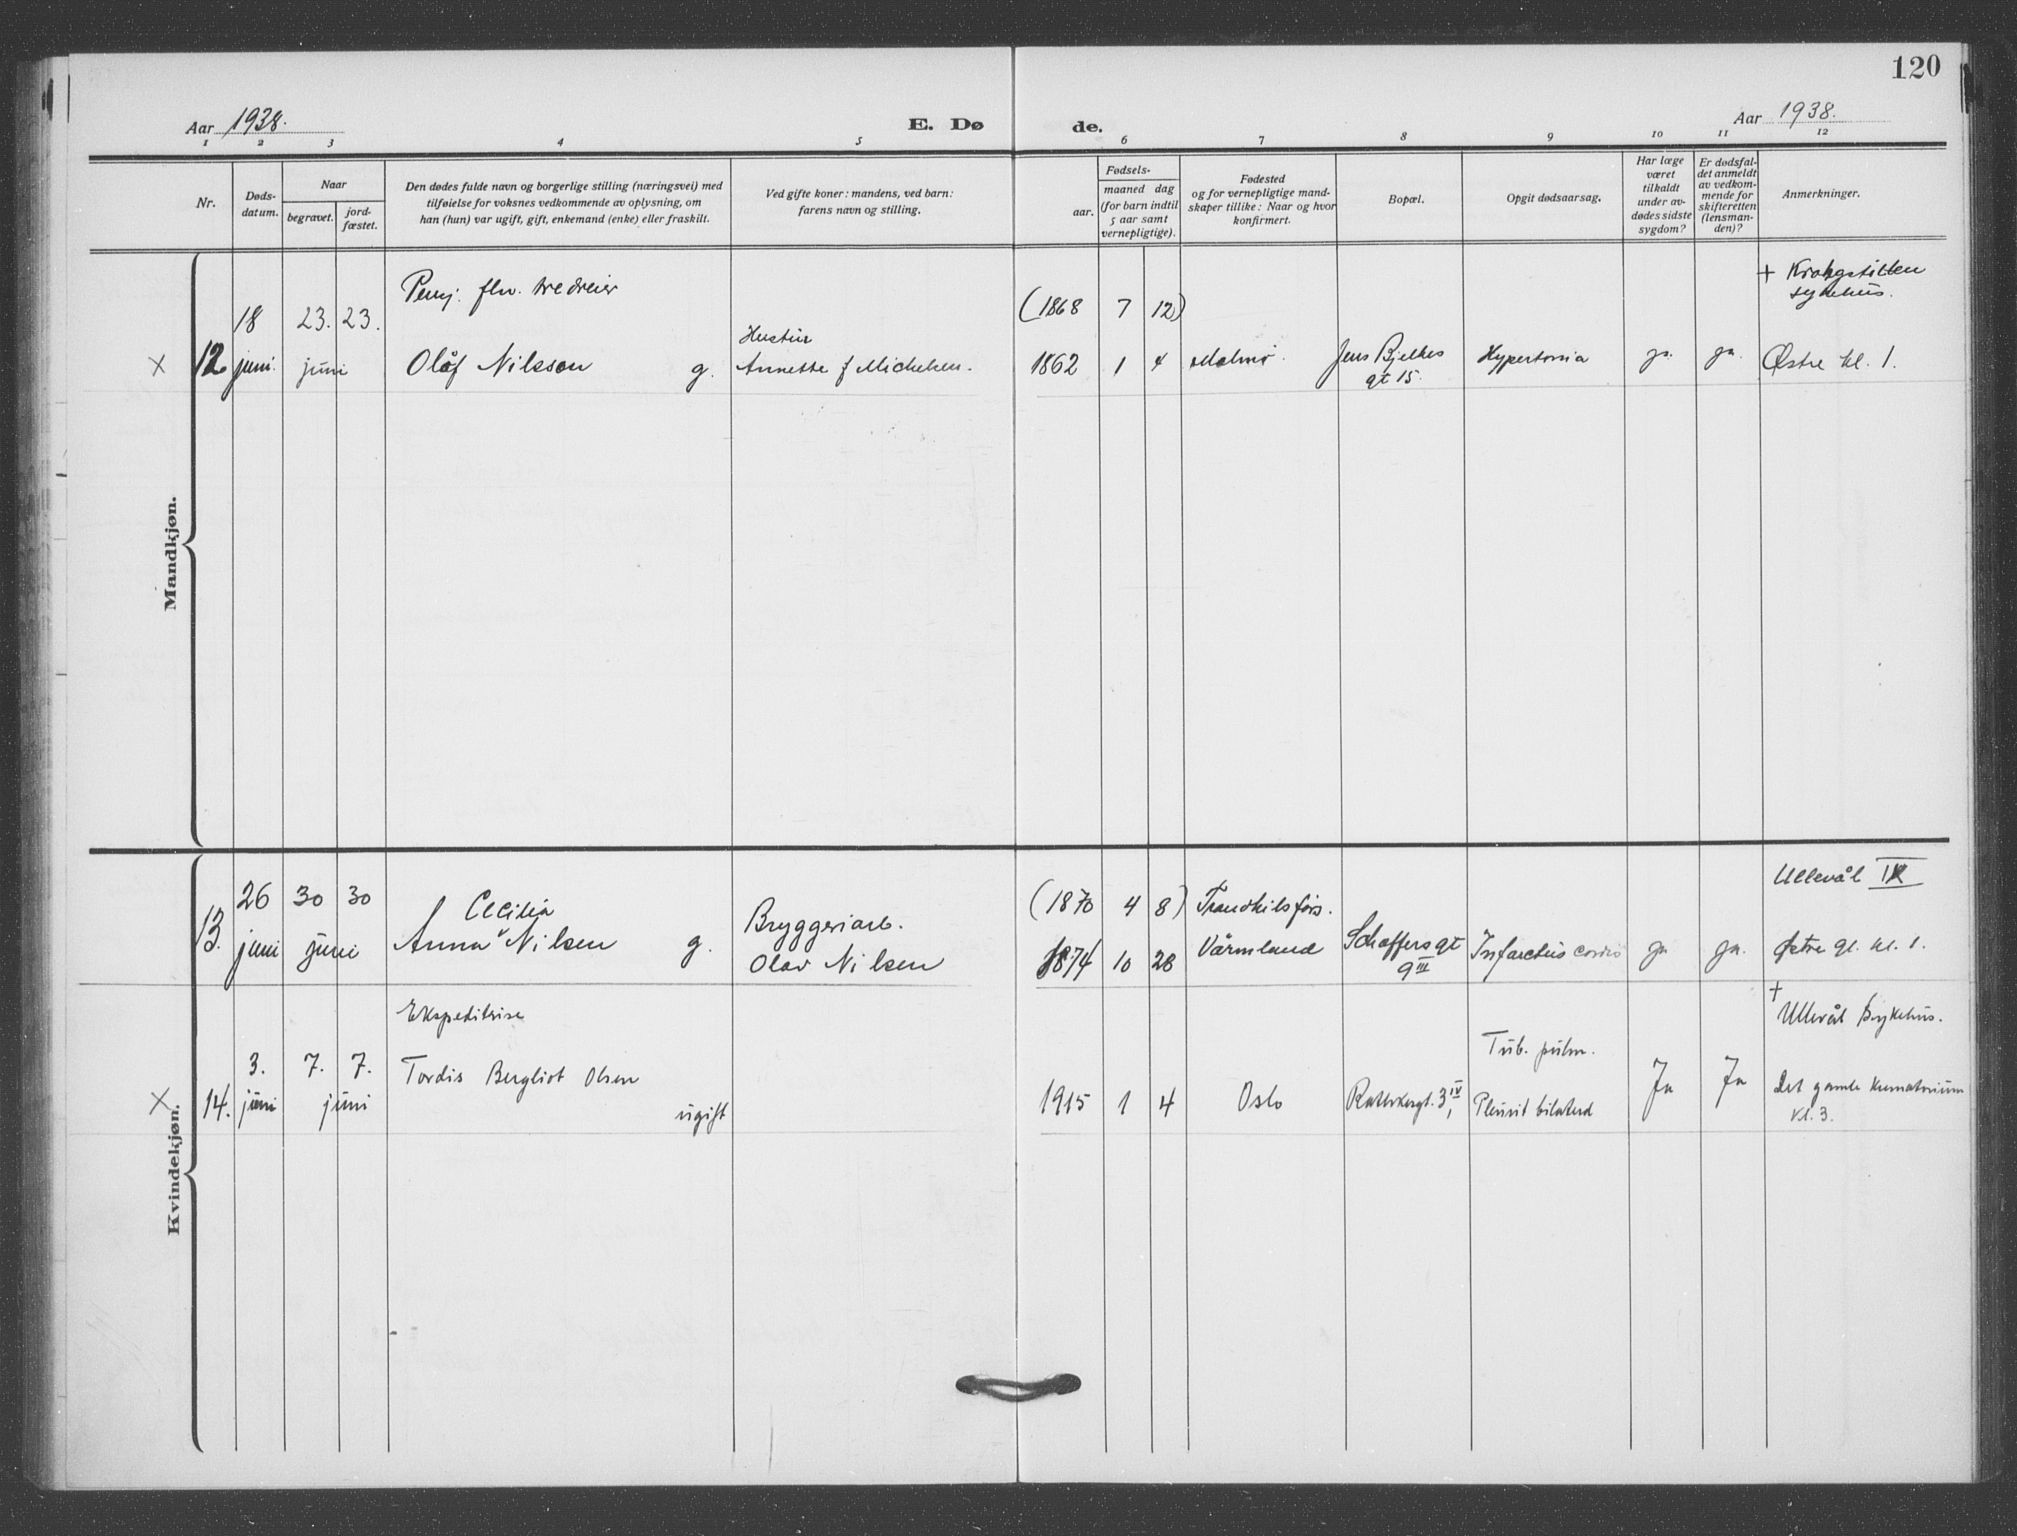 120
Aar 1938.
E. Dø
de.
Aar 1938.
1 2 3 4 5 6 7 8 9 10 11 12
Nr.
Døds-
datum.
Naar
begravet.
jord-
fæstet.
Den dødes fulde navn og borgerlige stilling (næringsvei) med
tilføielse for voksnes vedkommende av oplysning, om
han (hun) var ugift, gift, enkemand (enke) eller fraskilt.
Ved gifte koner: mandens, ved barn:
farens navn og stilling.
Fødsels-
aar.
maaned dag
(for barn indtil
5 aar samt
vernepligtige).
Fødested
og for vernepligtige mand-
skaper tillike: Naar og hvor
konfirmert.
Bopæl.
Opgit dødsaarsag.
Har læge
været
tilkaldt
under av-
dødes sidste
sygdom?
Er dødsfal-
det anmeldt
av vedkom-
mende for
skifteretten
(lensman-
den)?
Anmerkninger.
Mandkjøn.
Pensj. flv. tredreier
+ Krohgstøtten
sykehus.
18 23. 23. (1868 7 12)
Hustru
x 12 juni. juni Olåf Nilsson g. Annette f Michelsen. 1862 1 4 Malmö. Jens Bjelkes Hypertonia ja. ja. Østre kl. 1.
gt 15.
Kvindekjøn.
Ullevål IX
26 30 30 Cecilia (1870 4 8)
Bryggeriarb.
13. juni juni Anna Nilsen g. Olav Nilsen 1874 10 28 Värmland Schaffers gt Infarctus cordis ja ja. Østre gl. kl. 1.
9 III
Ekspeditrise
+ Ullevål Sykehus.
3. 7. 7. Tordis Bergliot Olsen Tub. pulm.
x 14. juni juni ugift 1915 1 4 Oslo Rathkesgt. 3 IV Pleurit bilateral Ja Ja Det gamle krematorium
kl. 3.